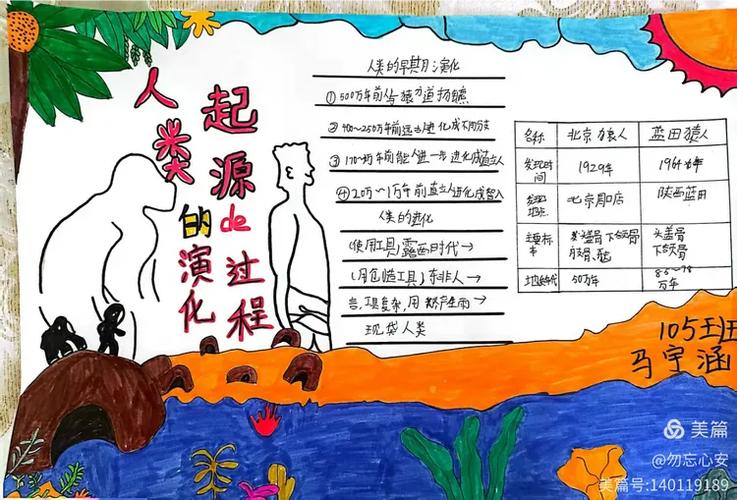 人类的演化
起源de过程
人类的早期演化
①500万年前人与猿分道扬镳
②400~250万年前远古进化成不同分支
③170~万年前能人进一步进化成直立人
④20万~1万年前直立人进化成智人
人类的进化
(使用工具)露西时代→
(用创造工具)东非人→
工具复杂,用火产生
现代人类
名称 北京猿人 蓝田猿人
发现时间 1929年 1964年
发现地点 北京周口店 陕西蓝田
主要标本 头盖骨下颌骨 头盖骨下颌骨
地质年代 50万年 万年
105班
马宇涵
美篇
@勿忘心安
美篇号:140119189